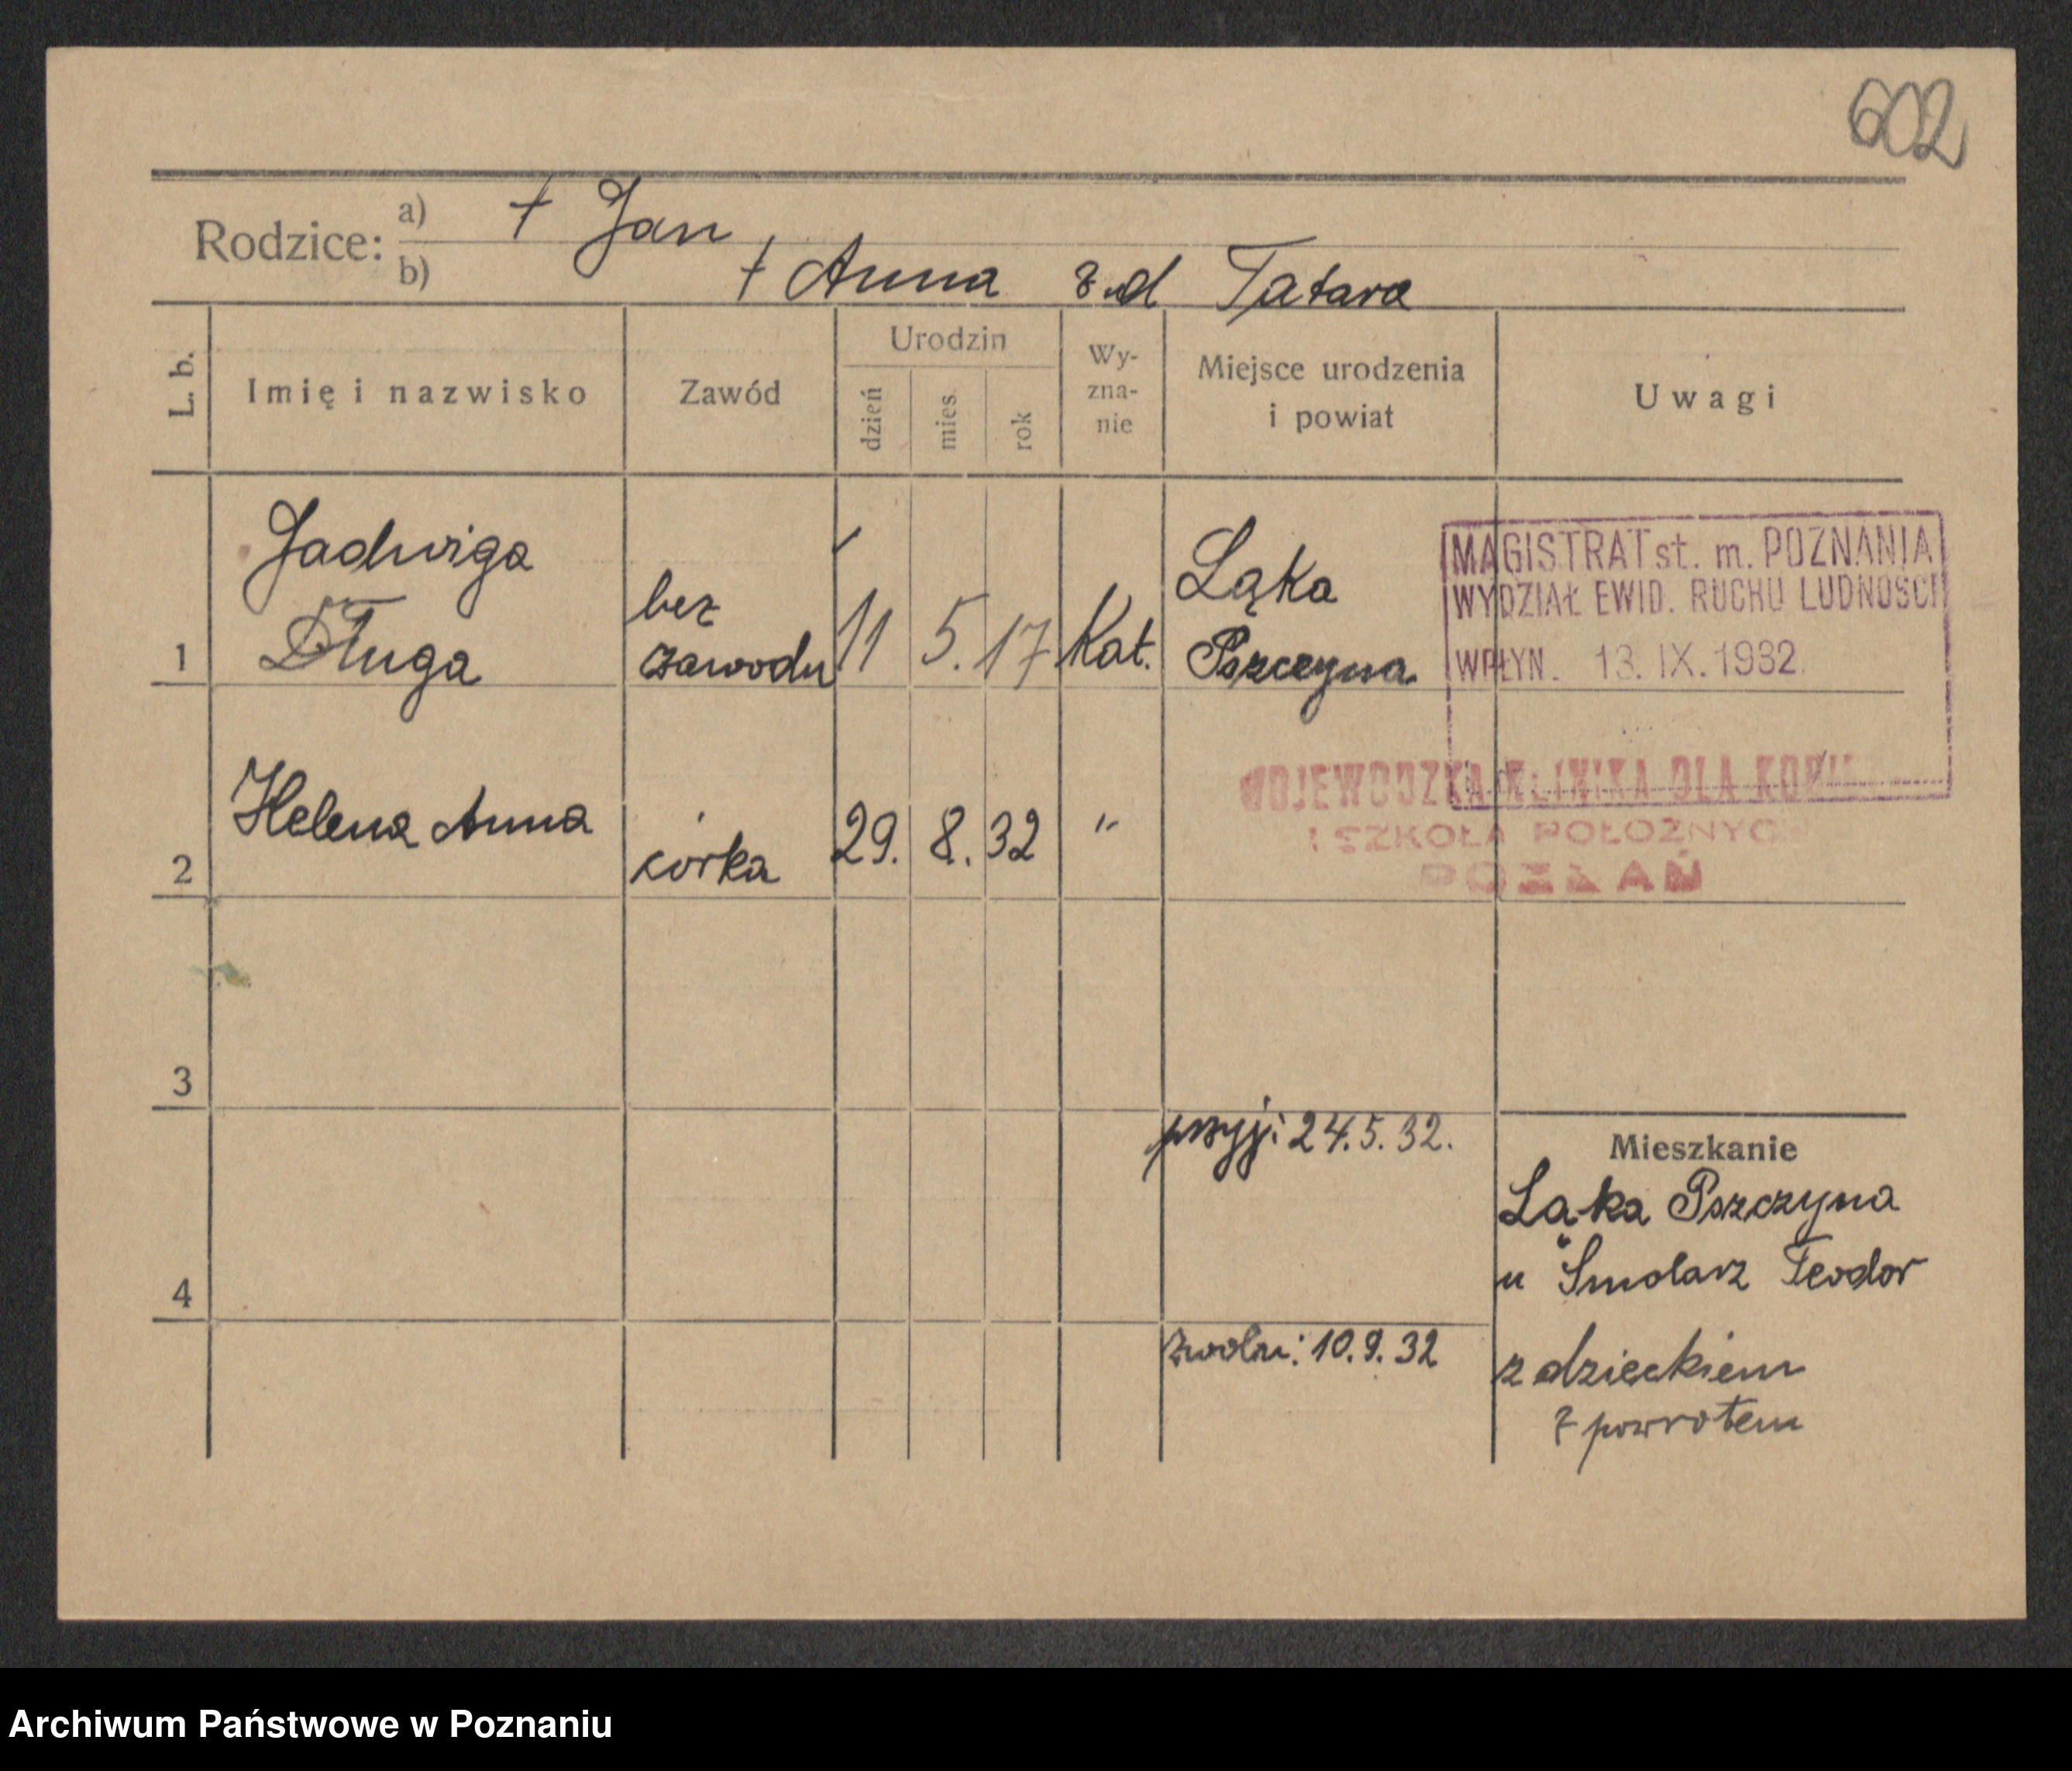 602
Rodzice: a) + Jan
b) + Anna z.d Tatara
L. b.
Imię i nazwisko
Zawód
Urodzin
dzień
mies.
rok
Wy-
zna-
nie
Miejsce urodzenia
i powiat
Uwagi
1
Jadwiga
Długa
bez
zawodu
11 5. 17
Kat.
Ląka
Pszczyna
MAGISTRAT st. m. POZNANIA
WYDZIAŁ EWID. RUCHU LUDNOŚCI
WPŁYN. 13. IX. 1932.
2
Helena Anna
córka
29. 8. 32
"
WOJEWÓDZKA KLINIKA DLA
I SZKOŁA POŁOŻNYC
POZNAŃ
3
przyj: 24.5.32.
4
zwoln: 10.9.32
Mieszkanie
Ląka Pszczyna
u Smolarz Teodor
z dzieckiem
z powrotem
Archiwum Państwowe w Poznaniu